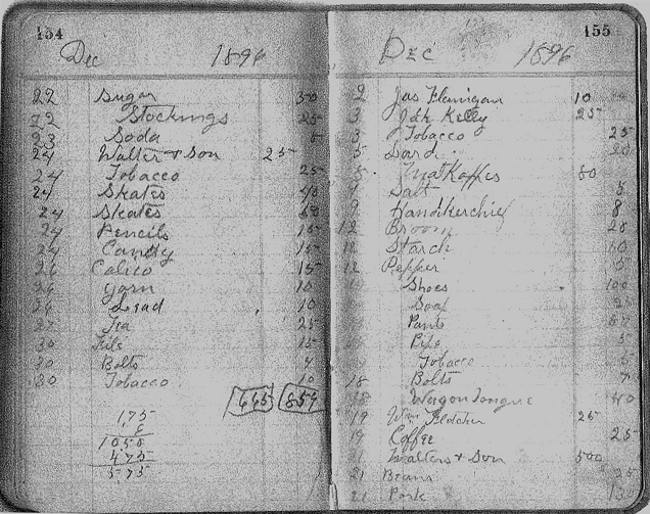 154
Dec 1896
22 Sugar 50
22 Stockings 25
23 Soda 5
24 Walter & Son 25
24 Tobacco 25
24 Skates 40
24 Skates
24 Pencils 15
24 Candy 15
26 Calico 15
26 Yarn 10
26 Lead 10
27 Tea 25
30 File 15
30 Bolts 4
30 Tobacco 10
665 859
175
6
1050
475
575
155
Dec 1896
2 Jas Flanigan 10
3 Jck Kelly 25
3 Tobacco 25
5 Lard 20
80
Salt 5
9 Handkerchief 8
12 Broom 20
12 Starch 10
12 Pepper 5
Shoes 100
Soap 25
Pants
Pipe 5
Tobacco 5
18 Bolts 7
18 Wagon Tongue 40
19 Wm Fletcher 25
19 Coffee 25
21 Walters & Son 500
21 Beans 25
21 Pork